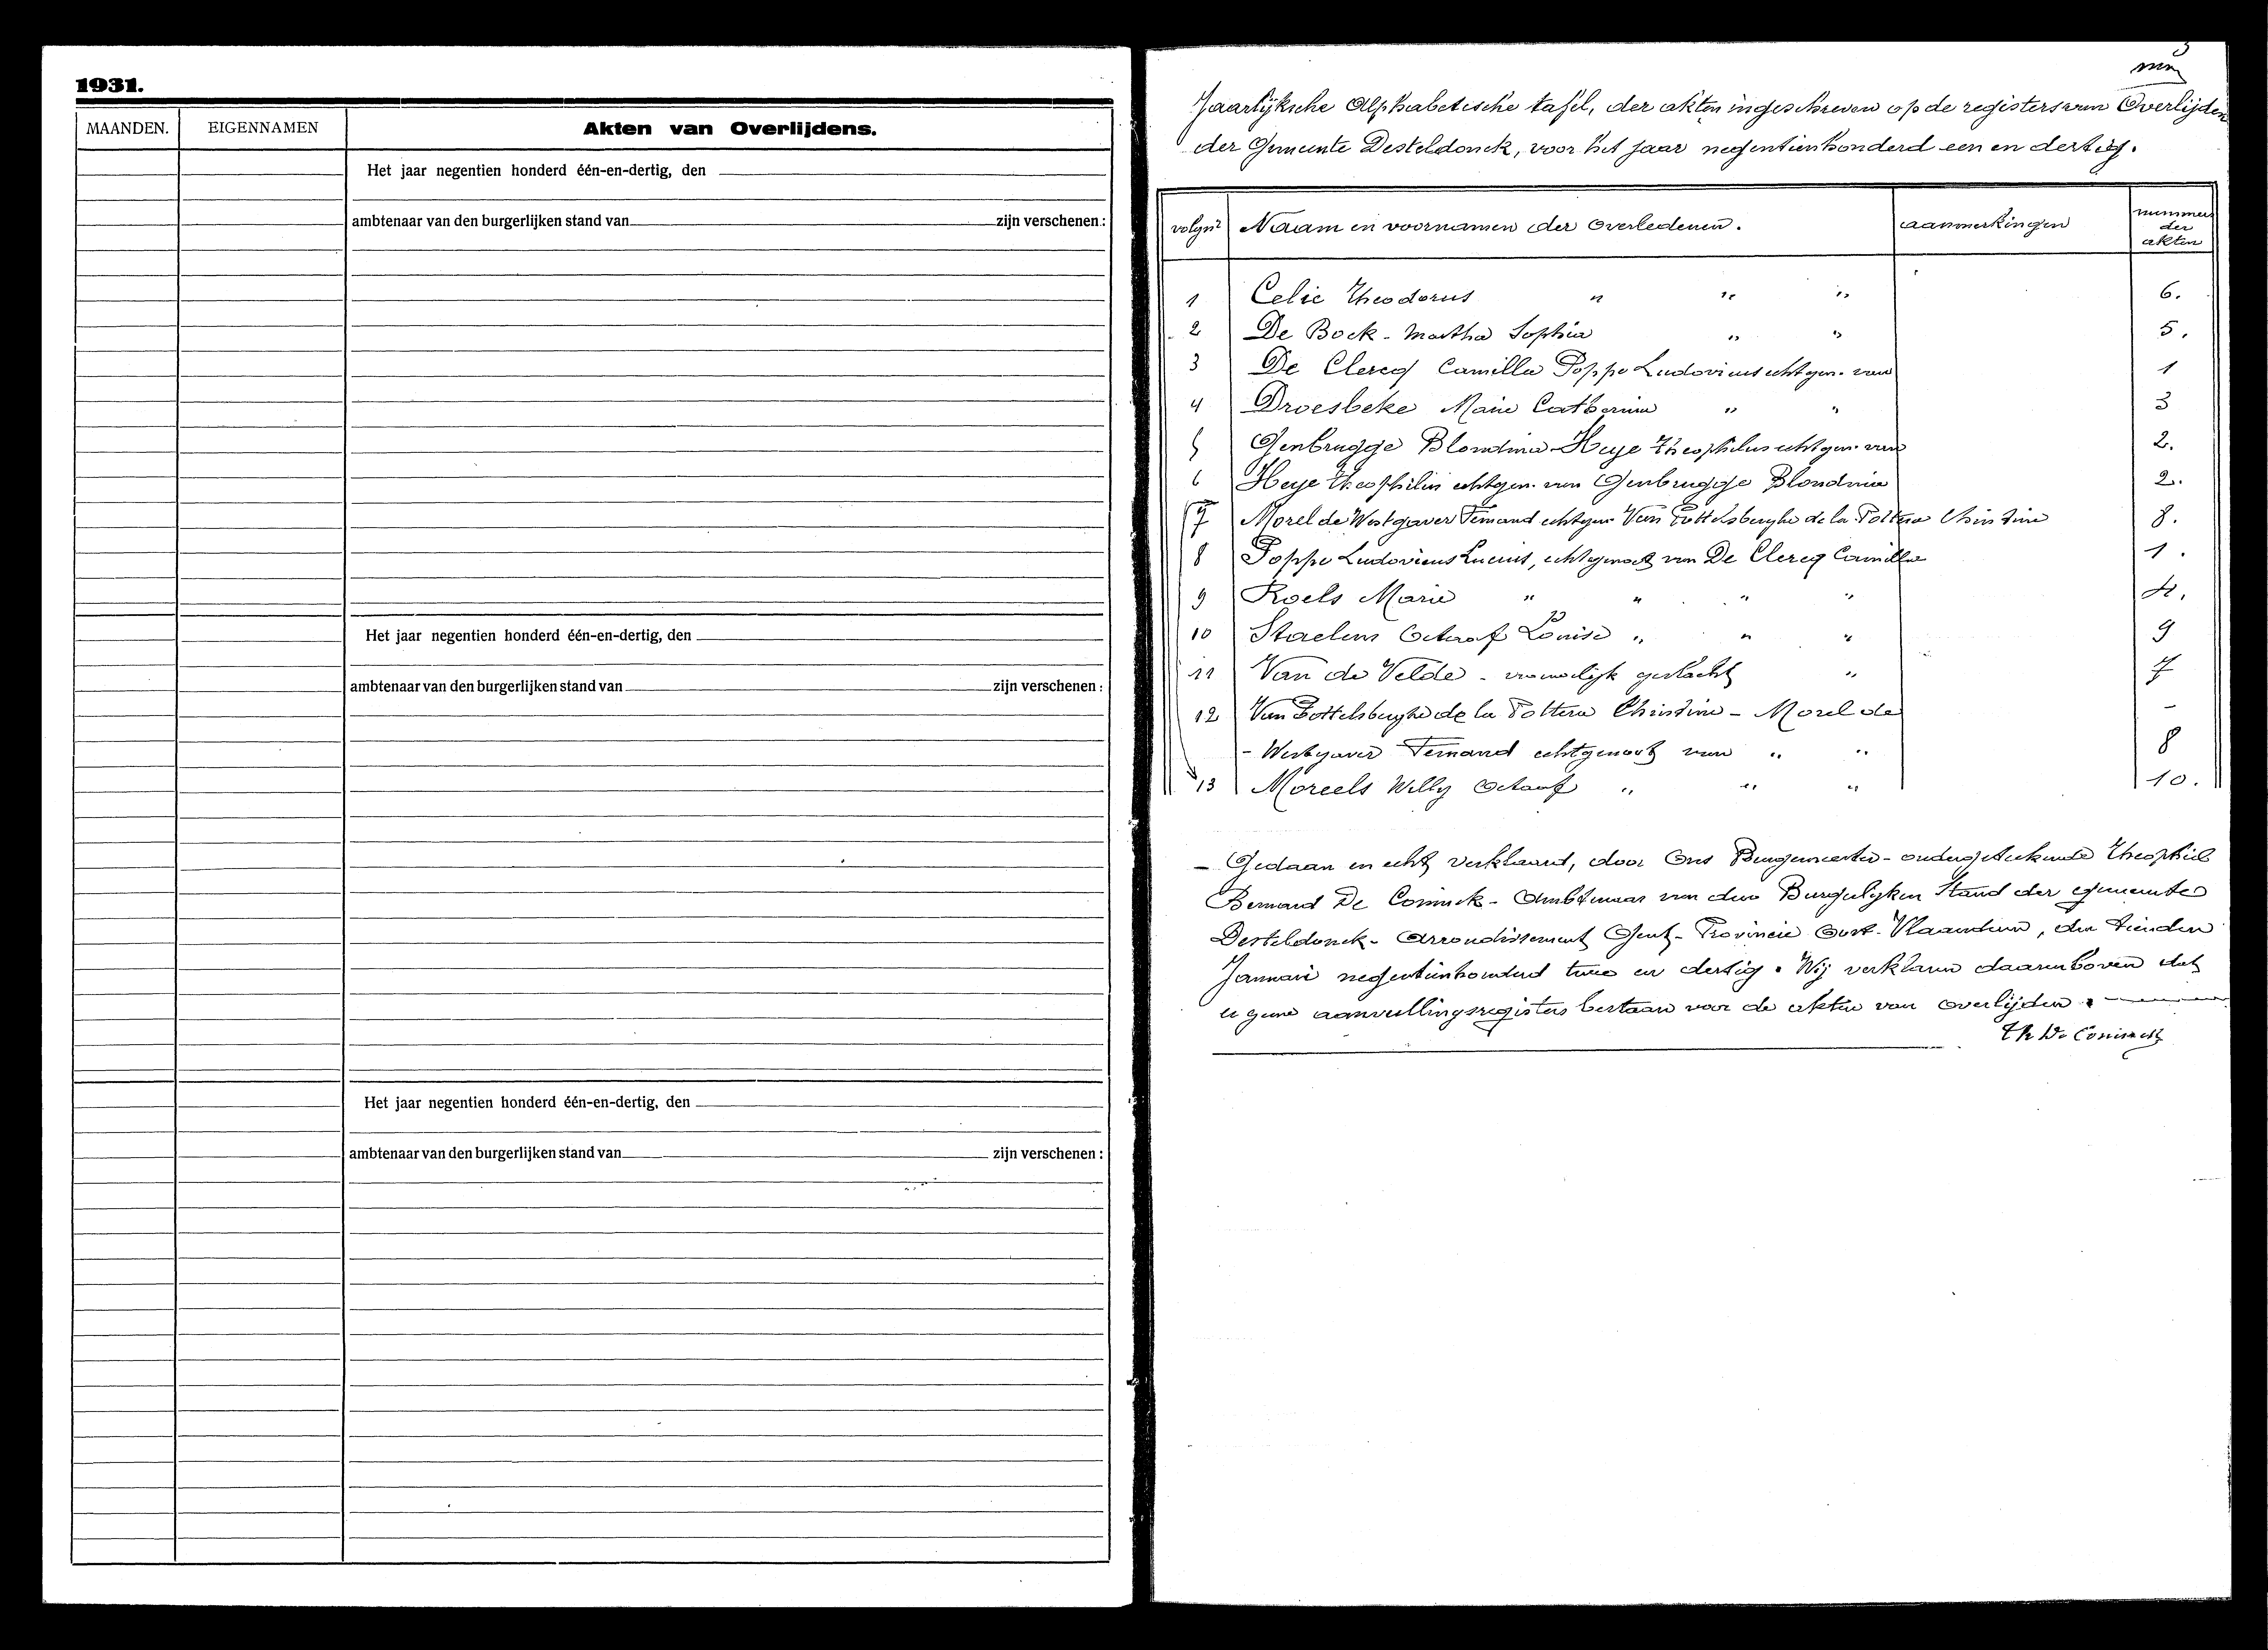 1931.
MAANDEN. EIGENNAMEN Akten van Overlijdens.
Het jaar negentien honderd één-en-dertig, den
ambtenaar van den burgerlijken stand van zijn verschenen :
Het jaar negentien honderd één-en-dertig, den
ambtenaar van den burgerlijken stand van zijn verschenen :
Het jaar negentien honderd één-en-dertig, den
ambtenaar van den burgerlijken stand van zijn verschenen :
Jaarlijksche Alphabetische tafel, der akten ingeschreven op de registers van Overlijden
der Gemeente Desteldonck, voor het jaar negentienhonderd een en dertig.
volgnr Naam en voornamen der overledenen. aanmerkingen nummers der akten
1 Celie Theodorus " " " 6.
2 De Bock - Martha Sophia " " 5.
3 De Clercq Camilla Poppe Ludovicus echtgen. van 1
4 Droesbeke Marie Catherina " " 3
5 Genbrugge Blondina Heye Theophilus echtgen. van 2.
6 Heye Theophilus echtgen. van Genbrugge Blondina 2.
7 Morel de Westgaver Fernand echtgen. Van Pottelsberghe de la Potterie Christine 8.
8 Poppe Ludovicus Lucius, echtgenoot van De Clercq Camilla 1.
9 Roels Marie " " " " 4.
10 Staelens Octaaf Louise " " " 9
11 Van de Velde - vrouwelijk geslacht " 7
12 Van Pottelsberghe de la Potterie Christine - Morel de -
- Westgaver Fernand echtgenoot van " " 8
13 Moreels Willy Octaaf " " " 10.
- Gedaan en echt verklaard, door Ons Burgemeester - ondergeteekende Theophiel
Bernard De Coninck - Ambtenaar van den Burgerlijken Stand der gemeente
Desteldonck - Arrondissement Gent - Provincie Oost-Vlaanderen, den tienden
Januari negentienhonderd twee en dertig. Wij verklaren daarenboven dat
er geene aanvullingsregisters bestaan voor de akten van overlijden.
Th De Coninck